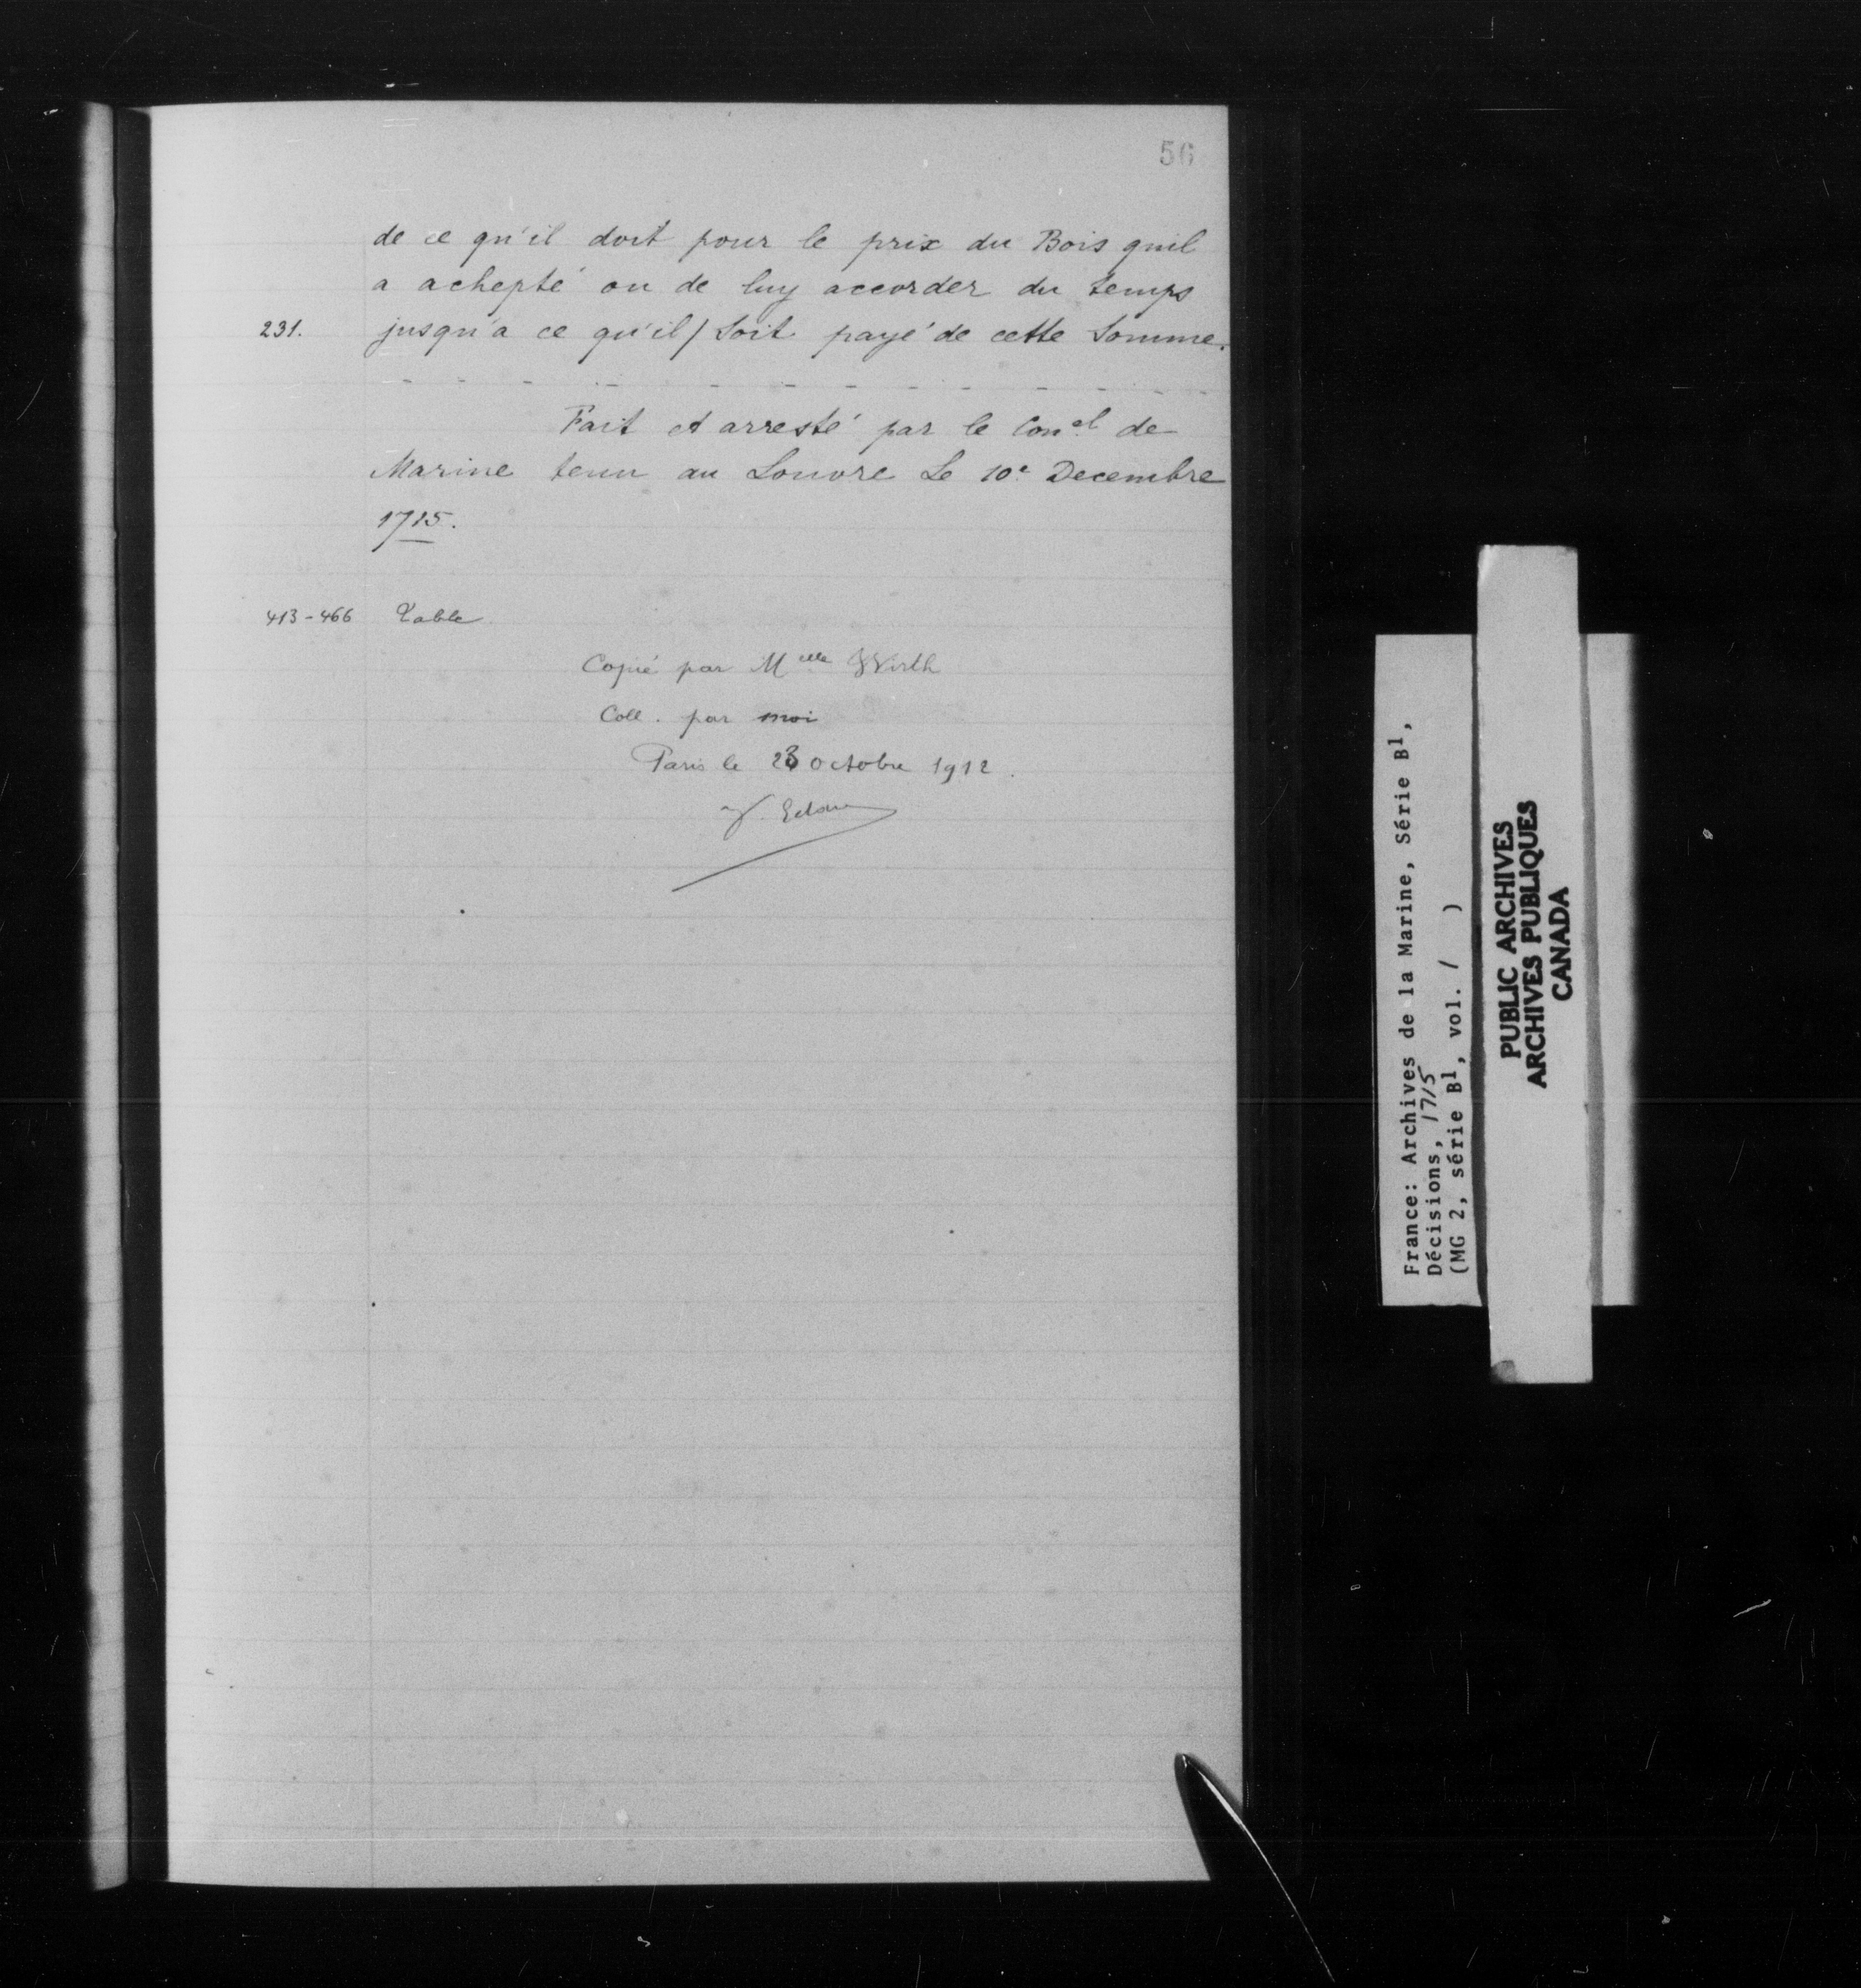 56
de ce qu'il doit pour le prix du Bois quil
a achepté ou de luy accorder du temps
231. jusqu'a ce qu'il / Soit payé de cette Somme.
- - - - - - - - - - - - -
Fait et arresté par le Con.el de
Marine tenu au Louvre Le 10.e Decembre
1715.
413-466 Table
Copié par Melle Wirth
Coll. par moi
Paris le 23 octobre 1912.
France: Archives de la Marine, Série B1,
Décisions, 1715
(MG 2, série B1, vol. 1 )
PUBLIC ARCHIVES
ARCHIVES PUBLIQUES
CANADA